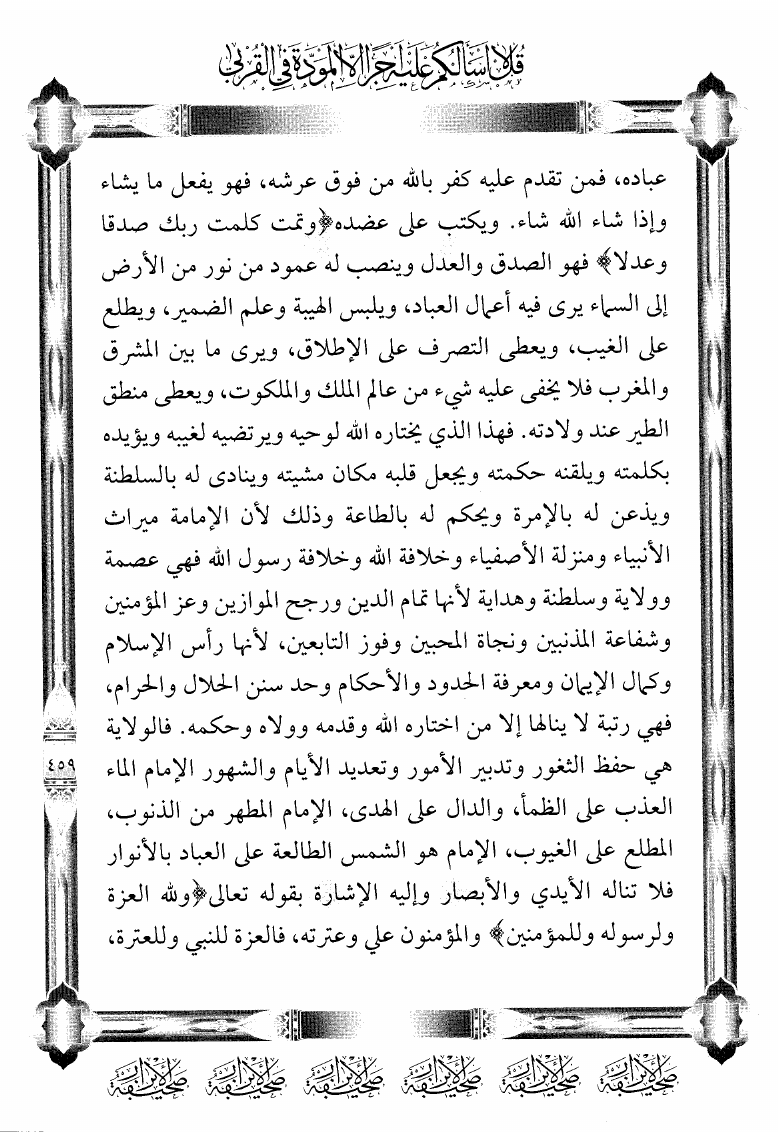 قل لا أسألكم عليه أجرا إلا المودة في القربى
عباده، فمن تقدم عليه كفر بالله من فوق عرشه، فهو يفعل ما يشاء
وإذا شاء الله شاء. ويكتب على عضده﴿وتمت كلمت ربك صدقا
وعدلا﴾ فهو الصدق والعدل وينصب له عمود من نور من الأرض
إلى السماء يرى فيه أعمال العباد، ويلبس الهيبة وعلم الضمير، ويطلع
على الغيب، ويعطى التصرف على الإطلاق، ويرى ما بين المشرق
والمغرب فلا يخفى عليه شيء من عالم الملك والملكوت، ويعطى منطق
الطير عند ولادته. فهذا الذي يختاره الله لوحيه ويرتضيه لغيبه ويؤيده
بكلمته ويلقنه حكمته ويجعل قلبه مكان مشيته وينادى له بالسلطنة
ويذعن له بالإمرة ويحكم له بالطاعة وذلك لأن الإمامة ميراث
الأنبياء ومنزلة الأصفياء وخلافة الله وخلافة رسول الله فهي عصمة
وولاية وسلطنة وهداية لأنها تمام الدين ورجح الموازين وعز المؤمنين
وشفاعة المذنبين ونجاة المحبين وفوز التابعين، لأنها رأس الإسلام
وكمال الإيمان ومعرفة الحدود والأحكام وحد سنن الحلال والحرام،
فهي رتبة لا ينالها إلا من اختاره الله وقدمه وولاه وحكمه. فالولاية
هي حفظ الثغور وتدبير الأمور وتعديد الأيام والشهور الإمام الماء
٤٥٩
العذب على الظمأ، والدال على الهدى، الإمام المطهر من الذنوب،
المطلع على الغيوب، الإمام هو الشمس الطالعة على العباد بالأنوار
فلا تناله الأيدي والأبصار وإليه الإشارة بقوله تعالى﴿ولله العزة
ولرسوله وللمؤمنين﴾ والمؤمنون علي وعترته، فالعزة للنبي وللعترة،
صحيفة الأبرار صحيفة الأبرار صحيفة الأبرار صحيفة الأبرار صحيفة الأبرار صحيفة الأبرار